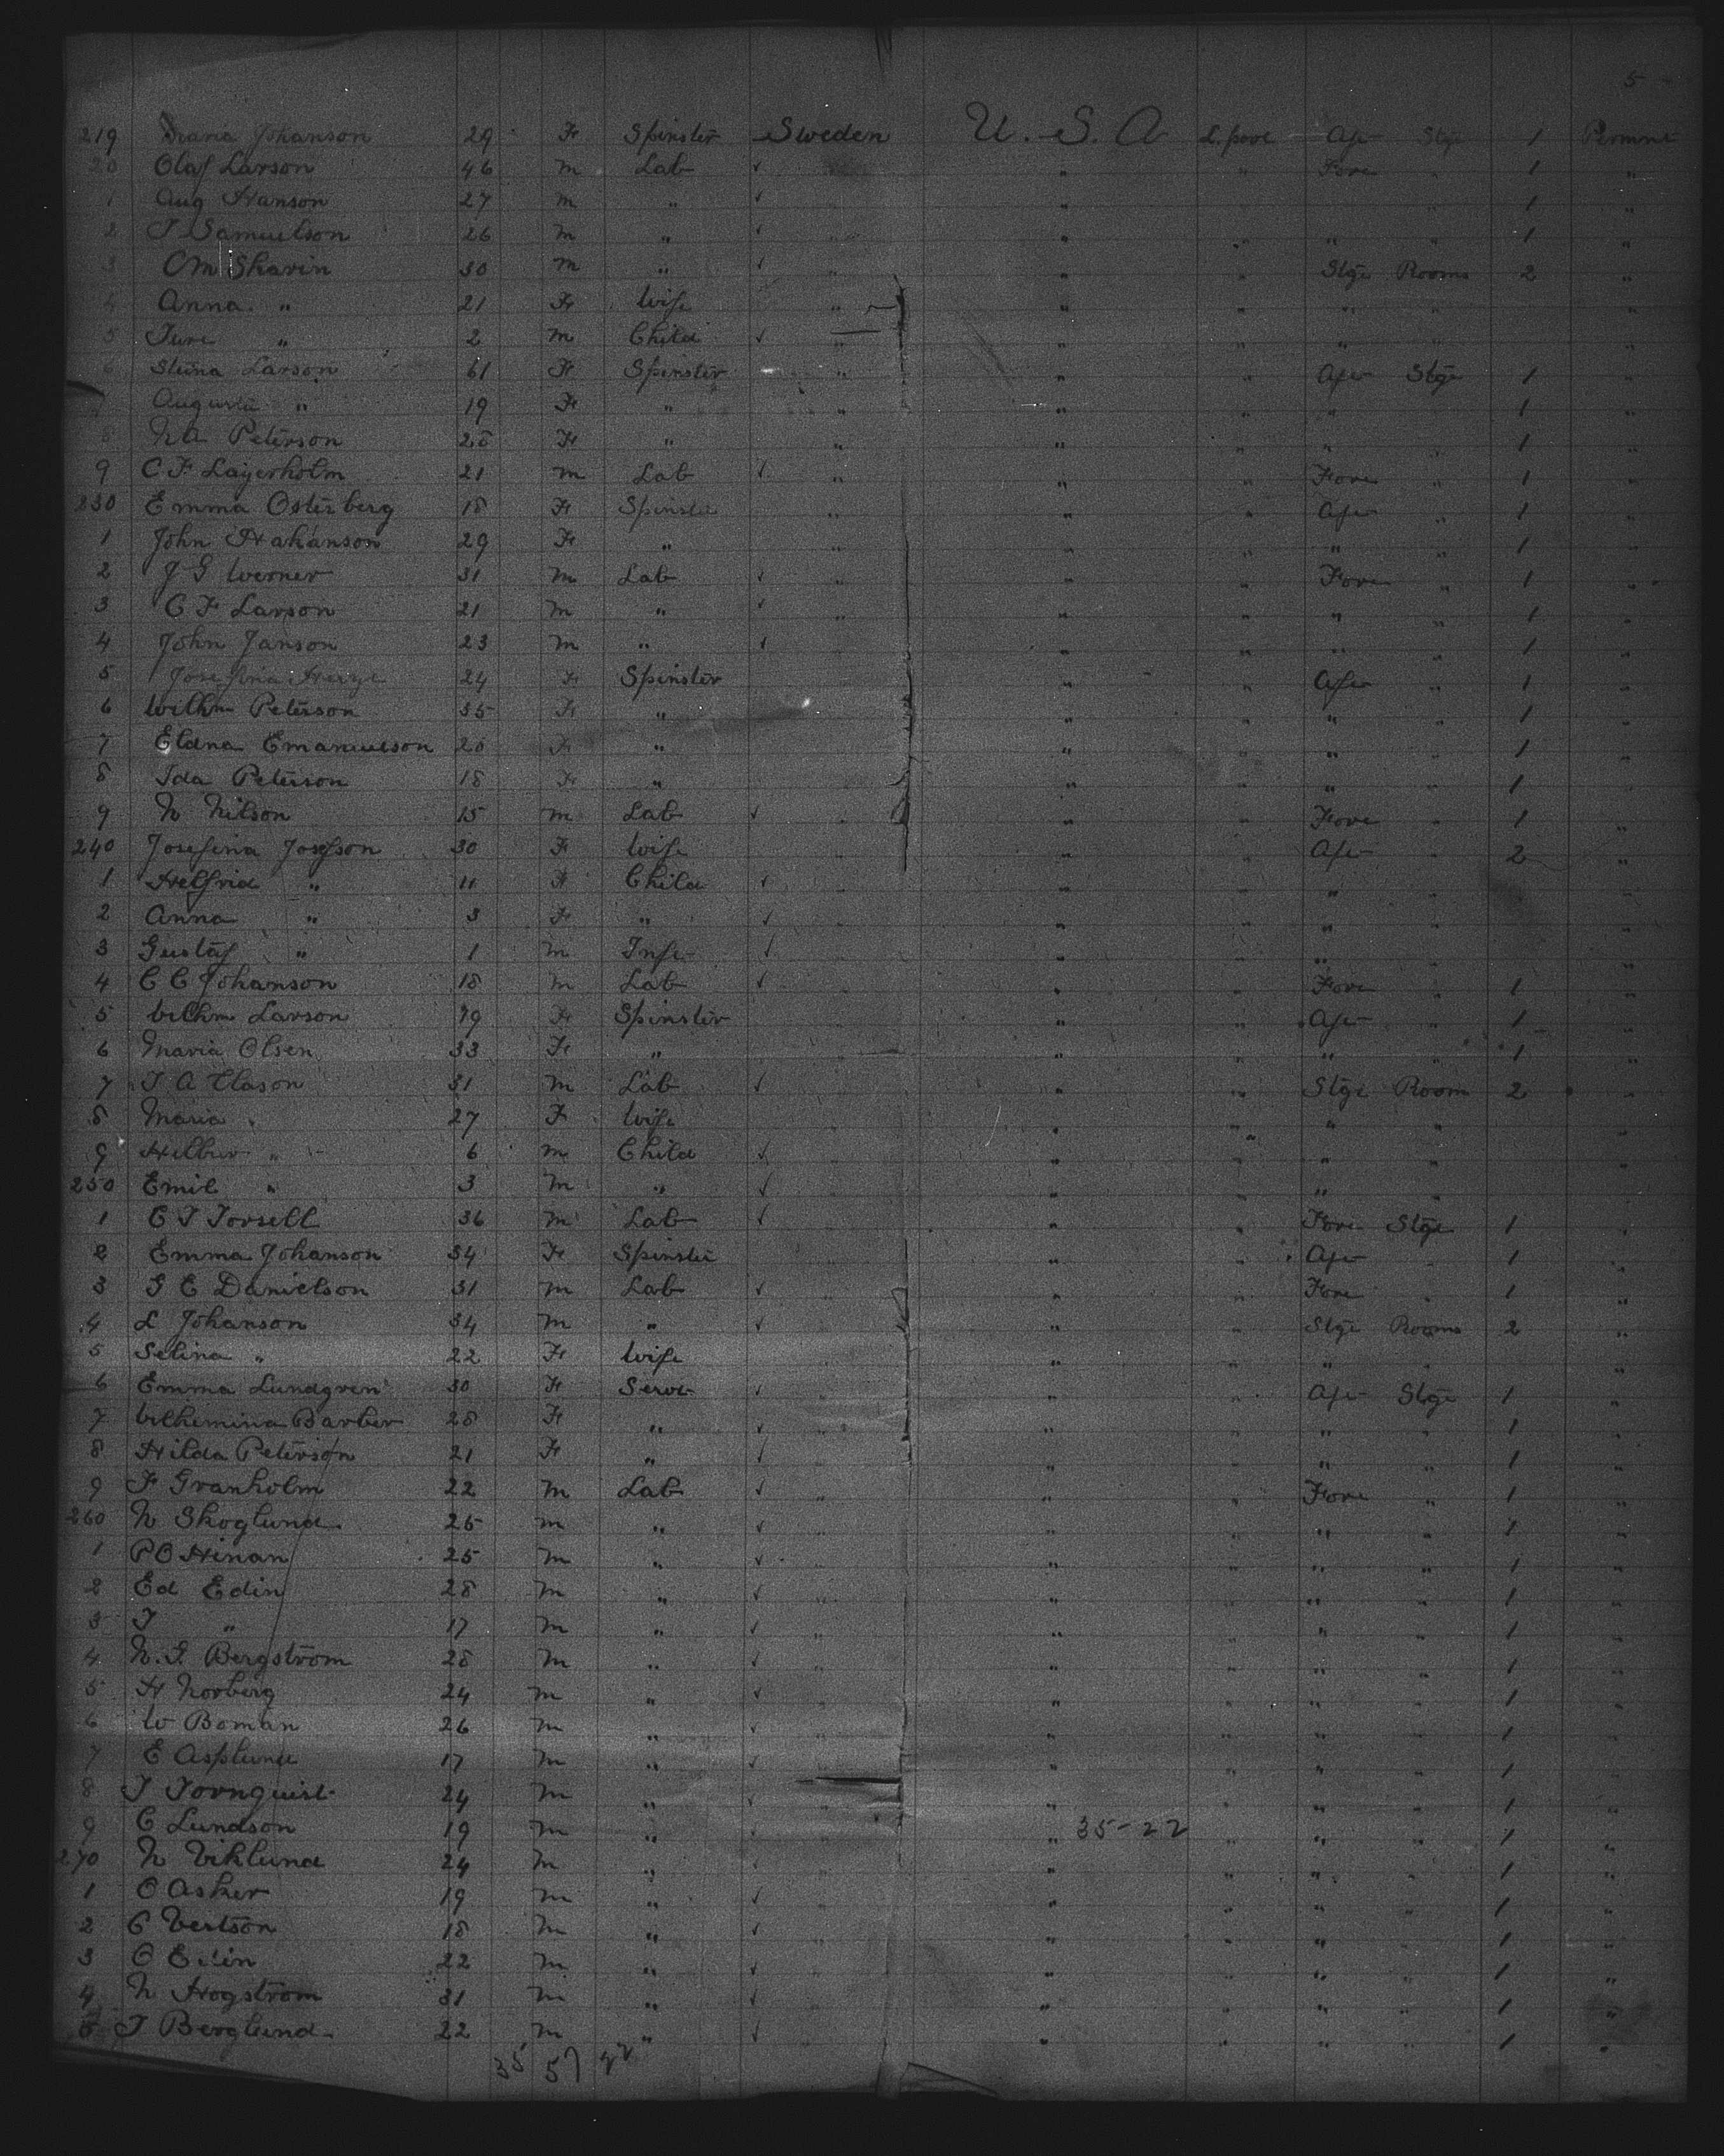 5
219 Maria Johanson 29 F Spinster Sweden U. S. A L.pool Aft Stge 1 Permnt
20 Olaf Larson 46 m Lab ✓ " " Fore " 1 "
1 Aug Hanson 27 m " ✓ " " " " 1 "
2 J Samuelson 26 m " ✓ " " " " " 1 "
3 CM Skarin 30 m " ✓ " " " Stge Rooms 2 "
4 Anna " 21 F Wife " " " " " "
5 Ture " 2 m Child ✓ " " " " " "
6 Stina Larson 61 F Spinster " " " Aft Stge 1 "
7 Augusta " 19 F " " " " " " 1 "
8 NA Peterson 28 F " " " " " " 1 "
9 C F Lagerholm 21 m Lab ✓ " " " Fore " 1 "
230 Emma Osterberg 18 F Spinster " " " Aft " 1 "
1 John Hakanson 29 F " " " " " " 1 "
2 J G Werner 31 m Lab ✓ " " " Fore " 1 "
3 C F Larson 21 m " ✓ " " " " " 1 "
4 John Janson 23 m " ✓ " " " " 1 "
5 Josefina 24 F Spinster " " Aft " 1 "
6 Wilhm Peterson 35 F " " " " " 1 "
7 Eldna Emanuelson 20 F " " " " " 1 "
8 Ida Peterson 18 F " " " " " 1 "
9 N Nilson 15 m Lab ✓ " " " Fore " 1 "
240 Josefina Josefson 30 F Wife " " " Aft " 2 "
1 Helfrid " 11 F Child ✓ " " " " "
2 Anna " 3 F " ✓ " " " " "
3 Gustaf " 1 m Inft ✓ " " " " "
4 C C Johanson 18 m Lab ✓ " " " Fore " 1 "
5 Wilhm Larson 19 F Spinster " " Aft " 1 "
6 Maria Olsen 33 F " " " " " 1 "
7 J A Clason 31 m Lab ✓ " " Stge Room 2 "
8 Maria " 27 F Wife " " " " "
9 " 6 m Child ✓ " " " " "
250 Emil " 3 m " ✓ " " " " "
1 C J Torsell 36 m Lab ✓ " " Fore Stge 1 "
2 Emma Johanson 34 F Spinster " " Aft " 1 "
3 G E Danielson 31 m Lab ✓ " " Fore " 1 "
4 L Johanson 34 m " ✓ " " Stge Rooms 2 "
5 Selina " 22 F Wife " " " " " "
6 Emma Lundgren 30 F Servt ✓ " " " Aft Stge 1 "
7 Wilhemina Barber 28 F " ✓ " " " " " 1 "
8 Hilda Peterson 21 F " ✓ " " " " " 1 "
9 F Granholm 22 m Lab ✓ " " " Fore " 1 "
260 N Skoglund 25 m " ✓ " " " " " 1 "
1 PO Hinan 25 m " ✓ " " " " " 1 "
2 Ed Edin 28 m " ✓ " " " " " 1 "
3 J " 17 m " ✓ " " " " " 1 "
4 N. J. Bergstrom 28 m " ✓ " " " " " 1 "
5 H Norberg 24 m " ✓ " " " " " 1 "
6 W Boman 26 m " ✓ " " " " " 1 "
7 E Asplund 17 m " ✓ " " " " " 1 "
8 J Tornquist 24 m " ✓ " " " " " 1 "
9 C Lundson 19 m " ✓ " " 35-22 " " " 1 "
270 N Viklund 24 m " ✓ " " " " " 1 "
1 O Asker 19 m " ✓ " " " " " 1 "
2 C Vertson 18 m " ✓ " " " " " 1 "
3 O Edin 22 m " ✓ " " " " " 1 "
4 N Hogstrom 31 m " ✓ " " " " " 1 "
5 J Berglund 22 m " ✓ " " " " 1 "
35 57 22